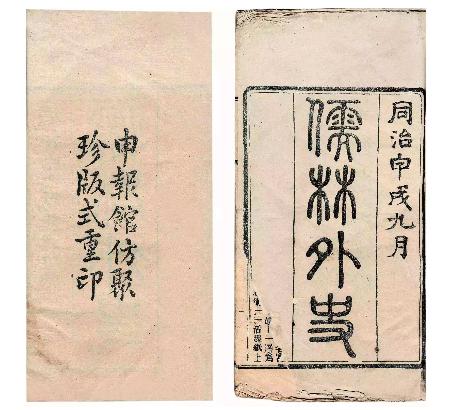 申報館仿聚
珍版式重印
同治甲戌九月
儒林外史